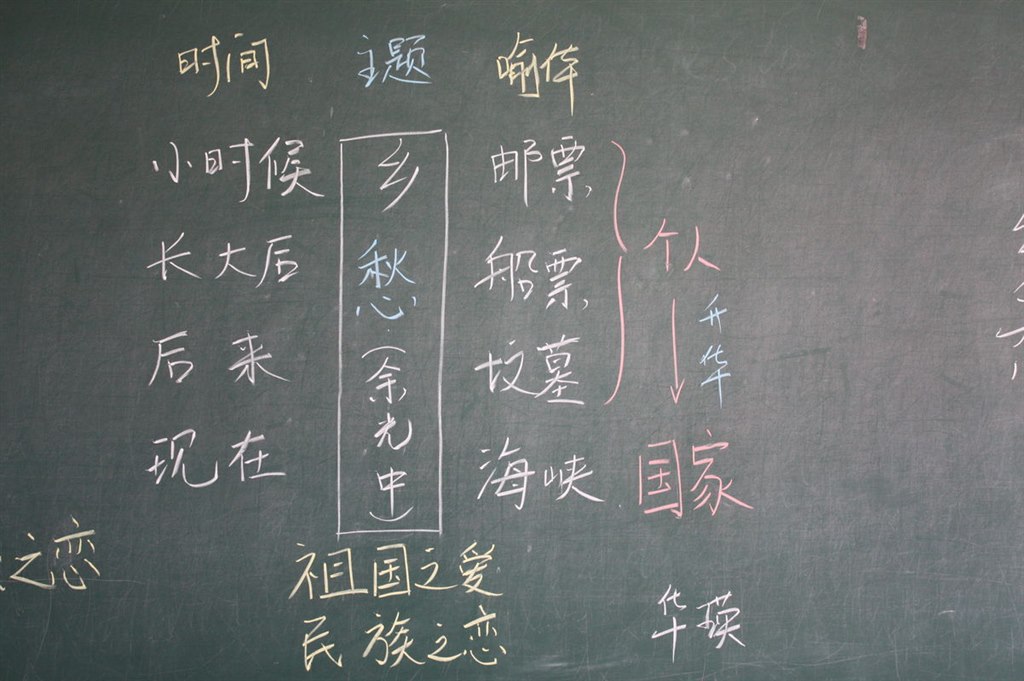 时间 主题 喻体
小时候 邮票
长大后 船票
后来 坟墓
现在 海峡
乡愁(余光中)
个人
升华
国家
之恋
祖国之爱
民族之恋
华瑛